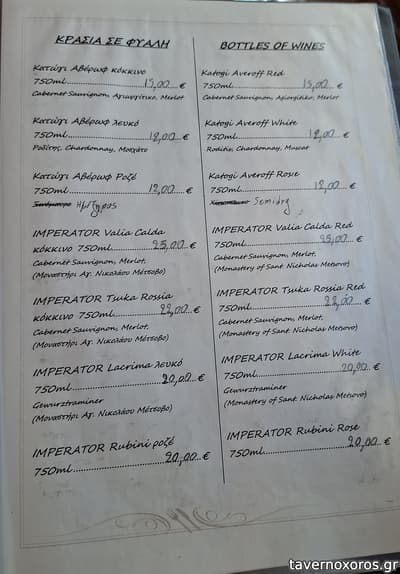 ΚΡΑΣΙΑ ΣΕ ΦΙΑΛΗ
Κατώγι Αβέρωφ κόκκινο
750ml 15,00 €
Cabernet Sauvignon, Αγιωργίτικο, Merlot
Κατώγι Αβέρωφ λευκό
750ml 18,00 €
Ροδίτης, Chardonnay, Μοσχάτο
Κατώγι Αβέρωφ Ροζέ
750ml 18,00 €
Ημίξηρος
IMPERATOR Valia Calda
κόκκινο 750ml 25,00 €
Cabernet Sauvignon, Merlot.
(Μοναστήρι Αγ. Νικολάου Μέτσοβο)
IMPERATOR Tsuka Rossia
κόκκινο 750ml 22,00 €
Cabernet Sauvignon, Merlot.
(Μοναστήρι Αγ. Νικολάου Μέτσοβο)
IMPERATOR Lacrima λευκό
750ml 20,00 €
Gewurztraminer
(Μοναστήρι Αγ. Νικολάου Μέτσοβο)
IMPERATOR Rubini ροζέ
750ml 20,00 €
BOTTLES OF WINES
Katogi Averoff Red
750ml 15,00 €
Cabernet Sauvignon, Agiorgitiko, Merlot
Katogi Averoff White
750ml 18,00 €
Roditis, Chardonnay, Muscat
Katogi Averoff Rose
750ml 18,00 €
Semidry
IMPERATOR Valia Calda Red
750ml 25,00 €
Cabernet Sauvignon, Merlot.
(Monastery of Sant Nicholas Metsovo)
IMPERATOR Tsuka Rossia Red
750ml 22,00 €
Cabernet Sauvignon, Merlot.
(Monastery of Sant. Nicholas Metsovo)
IMPERATOR Lacrima White
750ml 20,00 €
Gewurztraminer
(Monastery of Sant. Nicholas Metsovo)
IMPERATOR Rubini Rose
750ml 20,00 €
tavernoxoros.gr